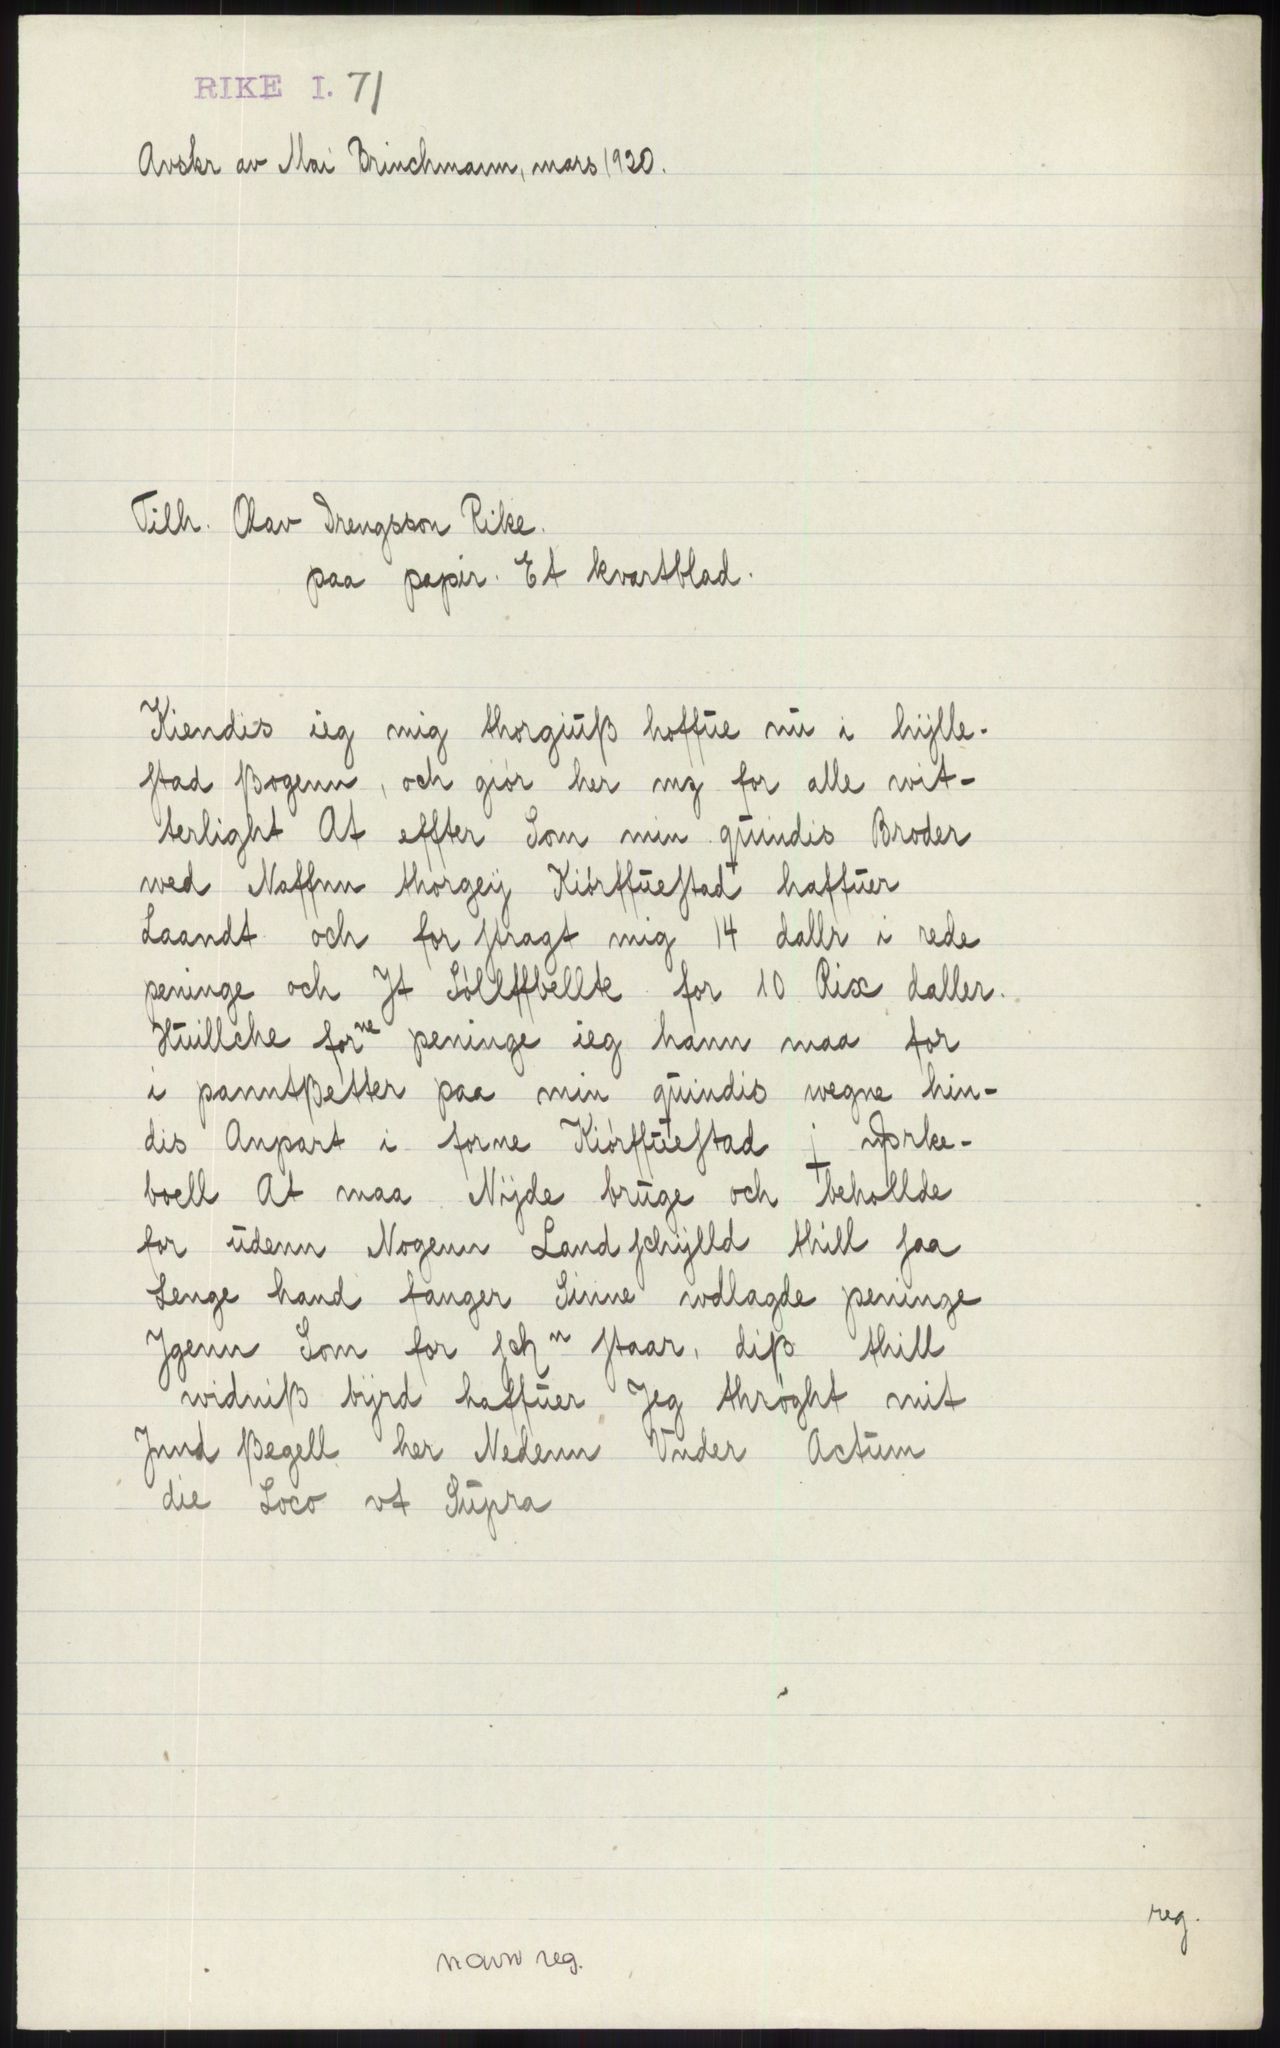 RIKE I. 71
Avskr av Mai Brinchmann, mars 1920.
Tilh. Olav Drengsson Rike.
paa papir. Et kvartblad.
Kiendis ieg mig thorgiuß hoffue nu i hylle-
stad ßogenn, och giør her mz for alle wit-
terlight At effter Som min quindis Broder
wed Naffnn thorgeij Kiørffuestad haffuer
Laandt och for stragt mig 14 dallr i rede
peninge och Jt Søllffbellte for 10 Rix daller.
Huillche forne peninge ieg hann maa for
i panntßetter paa min quindis wegne hin-
dis Anpart i forne Kiørffuestad j
boell At maa Nijde bruge och behollde
for udenn Nogenn Landschylld thill saa
Lenge hand fanger Sinne wdlagde peninge
Jgenn Som for staar, diß thill
widniß byrd haffuer Jeg thrøght mit
Jnnd ßegell her Nedenn Vnder Actum
die Loco vt Supra
reg.
navn reg.